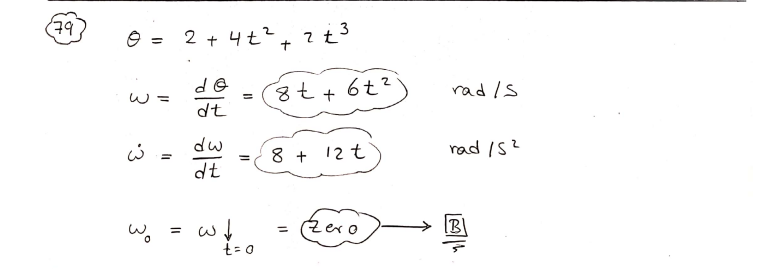 79 θ = 2 + 4t² + 2t³
ω = dθ/dt = 8t + 6t² rad/s
ω̇ = dω/dt = 8 + 12t rad/s²
ω₀ = ω↓t=0 = Zero → B